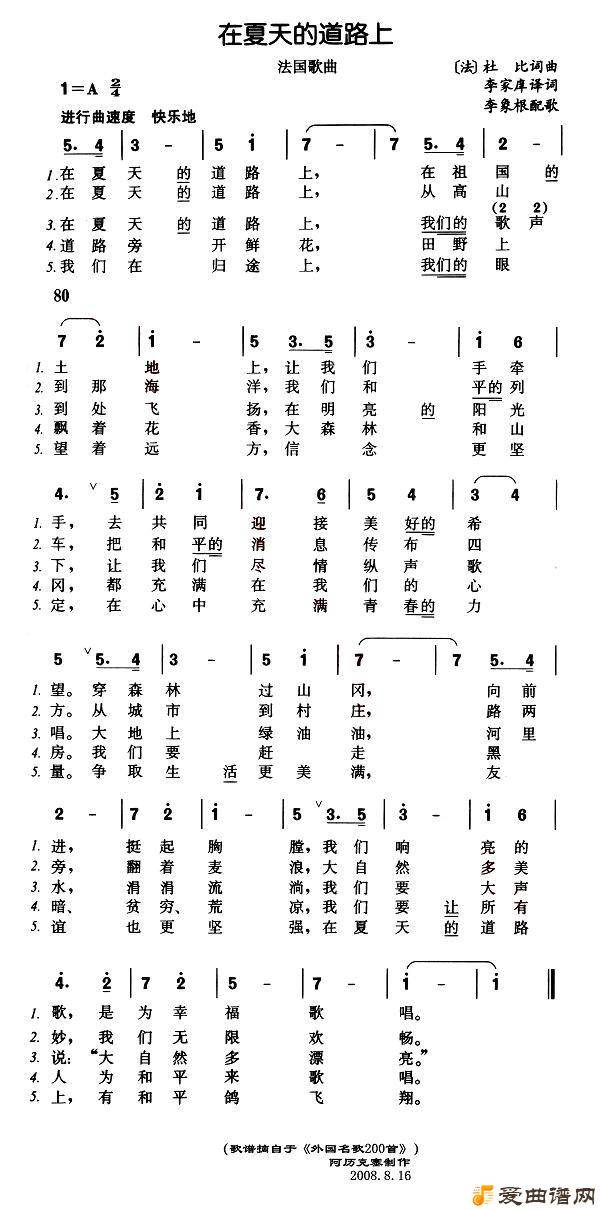 在夏天的道路上
法国歌曲
〔法〕杜 比词曲
1=A 2/4
李家库译词
李象根配歌
进行曲速度 快乐地
5. 4 | 3 - | 5 i | 7 - | 7 5. 4 | 2 -
1.在夏天的道路上, 在祖国的
2.在夏天的道路上, 从高山
(2 2)
3.在夏天的道路上, 我们的歌声
4.道路旁 开鲜花, 田野上
5.我们在 归途上, 我们的眼
80
7 2 | i - | 5 3. 5 | 3 - | i 6
1.土 地 上,让我们 手牵
2.到那海 洋,我们和平的列
3.到处飞 扬,在明亮的阳光
4.飘着花 香,大森林和山
5.望着远 方,信念 更坚
4. ∨ 5 | 2 i | 7. 6 | 5 4 | 3 4
1.手, 去共同迎接美好的希
2.车, 把和平的消息传布四
3.下, 让我们尽情纵声歌
4.冈, 都充满在我们的心
5.定, 在心中充满青春的力
5 ∨ 5. 4 | 3 - | 5 i | 7 - | 7 5. 4
1.望。穿森林 过山冈, 向前
2.方。从城市 到村庄, 路两
3.唱。大地上 绿油油, 河里
4.房。我们要 赶走 黑
5.量。争取生活更美满, 友
2 - | 7 2 | i - | 5 ∨ 3. 5 | 3 - | i 6
1.进, 挺起胸 膛,我们响亮的
2.旁, 翻着麦 浪,大自然多美
3.水, 涓涓流 淌,我们要大声
4.暗、贫穷、荒 凉,我们要让所有
5.谊 也更坚 强,在夏天的道路
4. 2 | 7 2 | 5 - | 7 - | i - | i ‖
1.歌,是为幸福歌 唱。
2.妙,我们无限欢 畅。
3.说:“大自然多漂 亮。”
4.人 为和平来歌 唱。
5.上,有和平鸽飞 翔。
(歌谱摘自于《外国名歌200首》)
阿历克塞制作
2008.8.16
爱曲谱网